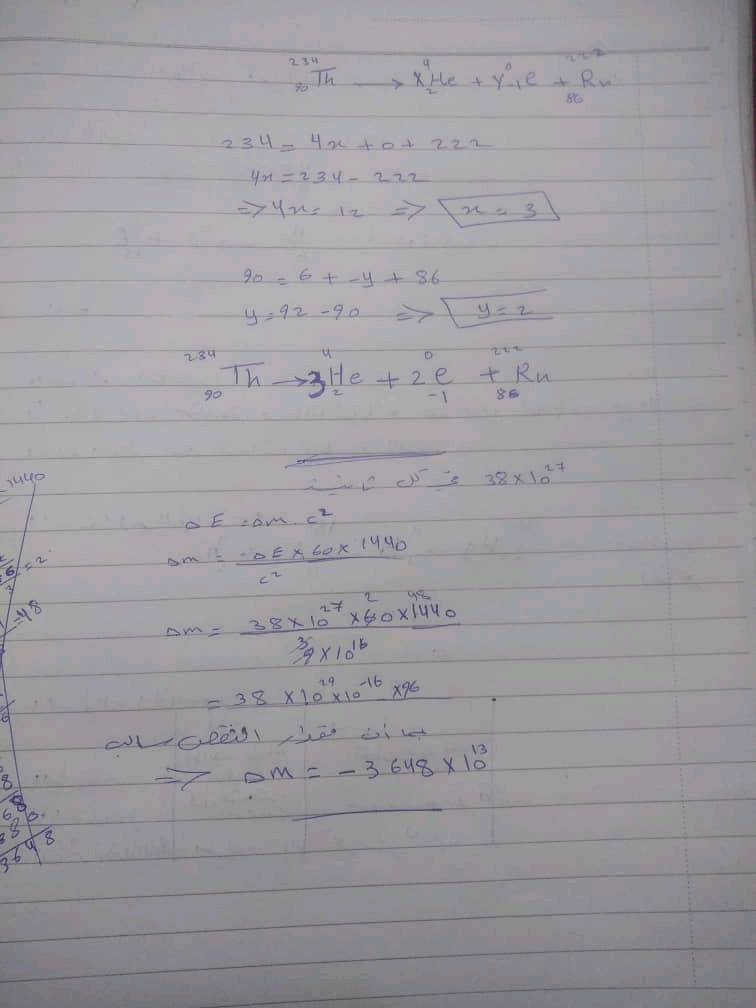 ²³⁴₉₀Th → X⁴₂He + Y⁰₋₁e + ²²²₈₆Rn
234 = 4x + 0 + 222
4x = 234 - 222
=> 4x = 12 => x = 3
90 = 6 + -y + 86
y = 92 - 90 => y = 2
²³⁴₉₀Th → 3⁴₂He + 2⁰₋₁e + ²²²₈₆Rn
38×10²⁷ في كل ثانية
ΔE = Δm . c²
Δm = -ΔE × 60 × 1440 / c²
Δm = 38×10²⁷ × 60 × 1440 / 9×10¹⁶
2 48
3
= 38 × 10²⁹ × 10⁻¹⁶ × 96
بما أن مقدار النقصان سالب
=> Δm = -3648 × 10¹³
1440
48
3648